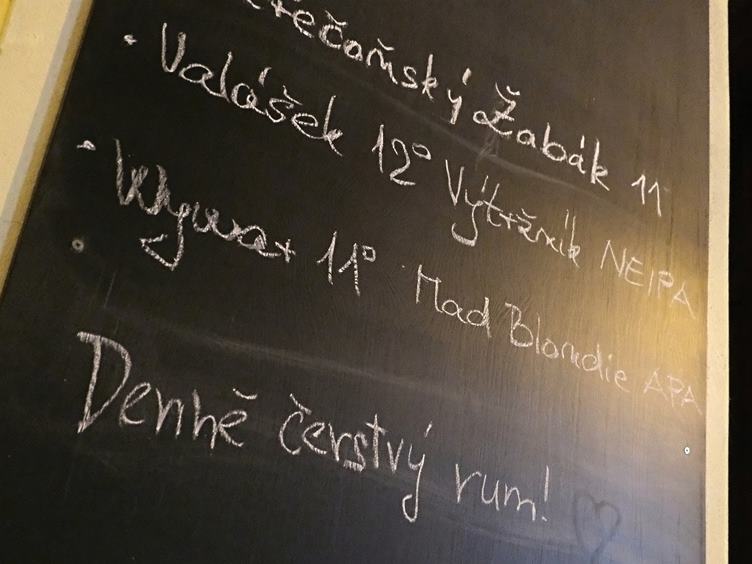 Žabák 11
Valášek 12° Výtržník NEIPA
Wywar 11° Mad Blondie APA
Denně čerstvý rum!